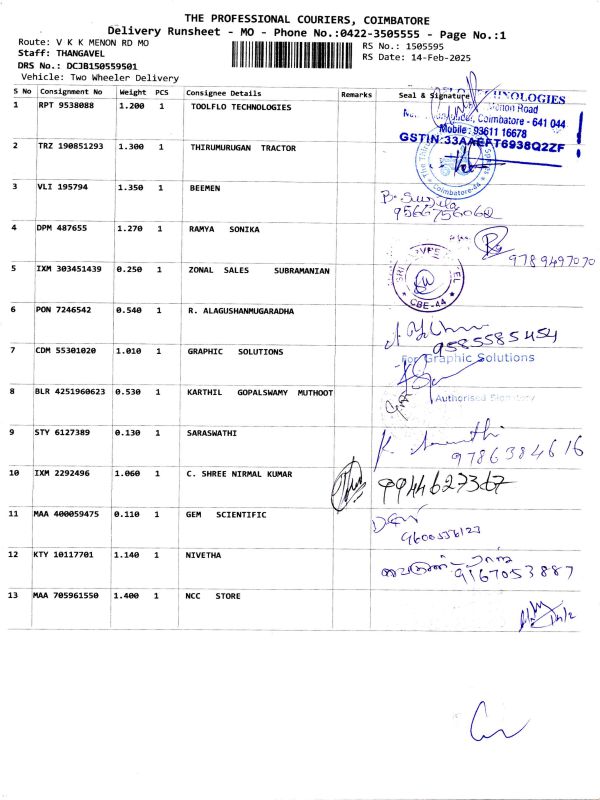 THE PROFESSIONAL COURIERS, COIMBATORE
Delivery Runsheet - MO - Phone No.:0422-3505555 - Page No.:1
Route: V K K MENON RD MO
RS No.: 1505595
Staff: THANGAVEL
RS Date: 14-Feb-2025
DRS No.: DCJB150559501
Vehicle: Two Wheeler Delivery
S No Consignment No Weight PCS Consignee Details Remarks Seal & Signature
1 RPT 9538088 1.200 1 TOOLFLO TECHNOLOGIES
Coimbatore - 641 044
Mobile : 93611 16678
GSTIN:33AAEFT6938Q2ZF
2 TRZ 190851293 1.300 1 THIRUMURUGAN TRACTOR
Coimbatore-44
3 VLI 195794 1.350 1 BEEMEN
4 DPM 487655 1.270 1 RAMYA SONIKA
9789497070
5 IXM 303451439 0.250 1 ZONAL SALES SUBRAMANIAN
CBE-44
6 PON 7246542 0.540 1 R. ALAGUSHANMUGARADHA
9585585454
7 CDM 55301020 1.010 1 GRAPHIC SOLUTIONS
For Graphic Solutions
8 BLR 4251960623 0.530 1 KARTHIL GOPALSWAMY MUTHOOT
Authorised Signatory
9 STY 6127389 0.130 1 SARASWATHI
9786384616
10 IXM 2292496 1.060 1 C. SHREE NIRMAL KUMAR
9944627367
11 MAA 400059475 0.110 1 GEM SCIENTIFIC
12 KTY 10117701 1.140 1 NIVETHA
9167053887
13 MAA 705961550 1.400 1 NCC STORE